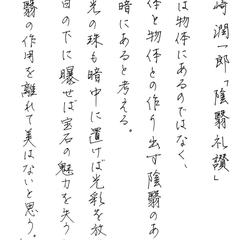 崎潤一郎「陰翳礼讃」
は物体にあるのではなく、
体と物体との作り出す陰翳のあ
暗にあると考える。
光の珠も暗中に置けば光彩を放
日の下に曝せば宝石の魅力を失う
翳の作用を離れて美はないと思う。